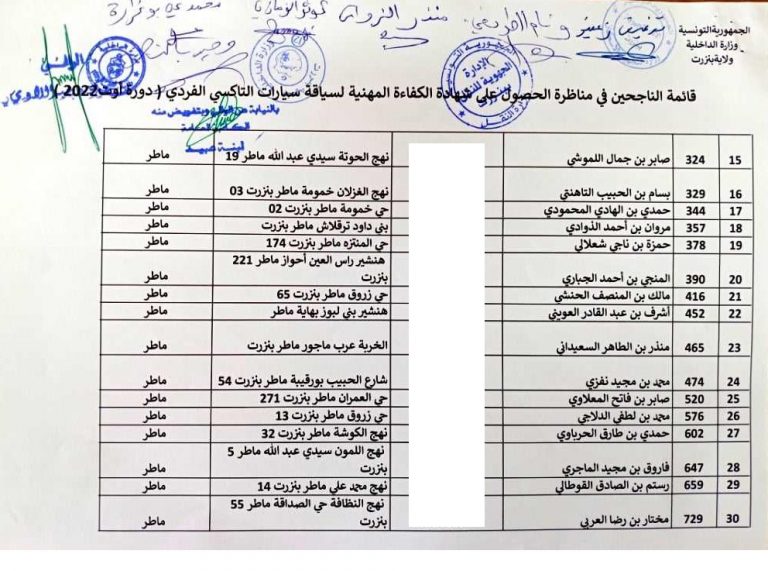 الجمهورية التونسية
وزارة الداخلية
ولاية بنزرت
قائمة الناجحين في مناظرة الحصول على شهادة الكفاءة المهنية لسياقة سيارات التاكسي الفردي ( دورة أوت 2022 )
15 324 صابر بن جمال اللموشي نهج الحوتة سيدي عبد الله ماطر 19 ماطر
16 329 بسام بن الحبيب التاهنتي نهج الغزلان خمومة ماطر بنزرت 03 ماطر
17 344 حمدي بن الهادي المحمودي حي خمومة ماطر بنزرت 02 ماطر
18 357 مروان بن أحمد الذوادي بني داود ترقلاش ماطر بنزرت ماطر
19 378 حمزة بن ناجي شعلالي حي المنتزه ماطر بنزرت 174 ماطر
20 390 المنجي بن أحمد الجباري هنشير راس العين أحواز ماطر 221 بنزرت ماطر
21 416 مالك بن المنصف الحنشي حي زروق ماطر بنزرت 65 ماطر
22 452 أشرف بن عبد القادر العويني هنشير بني لبوز بهاية ماطر ماطر
23 465 منذر بن الطاهر السعيداني الخربة عرب ماجور ماطر بنزرت ماطر
24 474 محمد بن مجيد نفزي شارع الحبيب بورقيبة ماطر بنزرت 54 ماطر
25 520 صابر بن فاتح المعلاوي حي العمران ماطر بنزرت 271 ماطر
26 576 محمد بن لطفي الدلاجي حي زروق ماطر بنزرت 13 ماطر
27 602 حمدي بن طارق الحرباوي نهج الكوشة ماطر بنزرت 32 ماطر
28 647 فاروق بن مجيد الماجري نهج اللمون سيدي عبد الله ماطر 5 بنزرت ماطر
29 659 رستم بن الصادق القوطالي نهج محمد علي ماطر بنزرت 14 ماطر
30 729 مختار بن رضا العربي نهج النظافة حي الصداقة ماطر 55 بنزرت ماطر